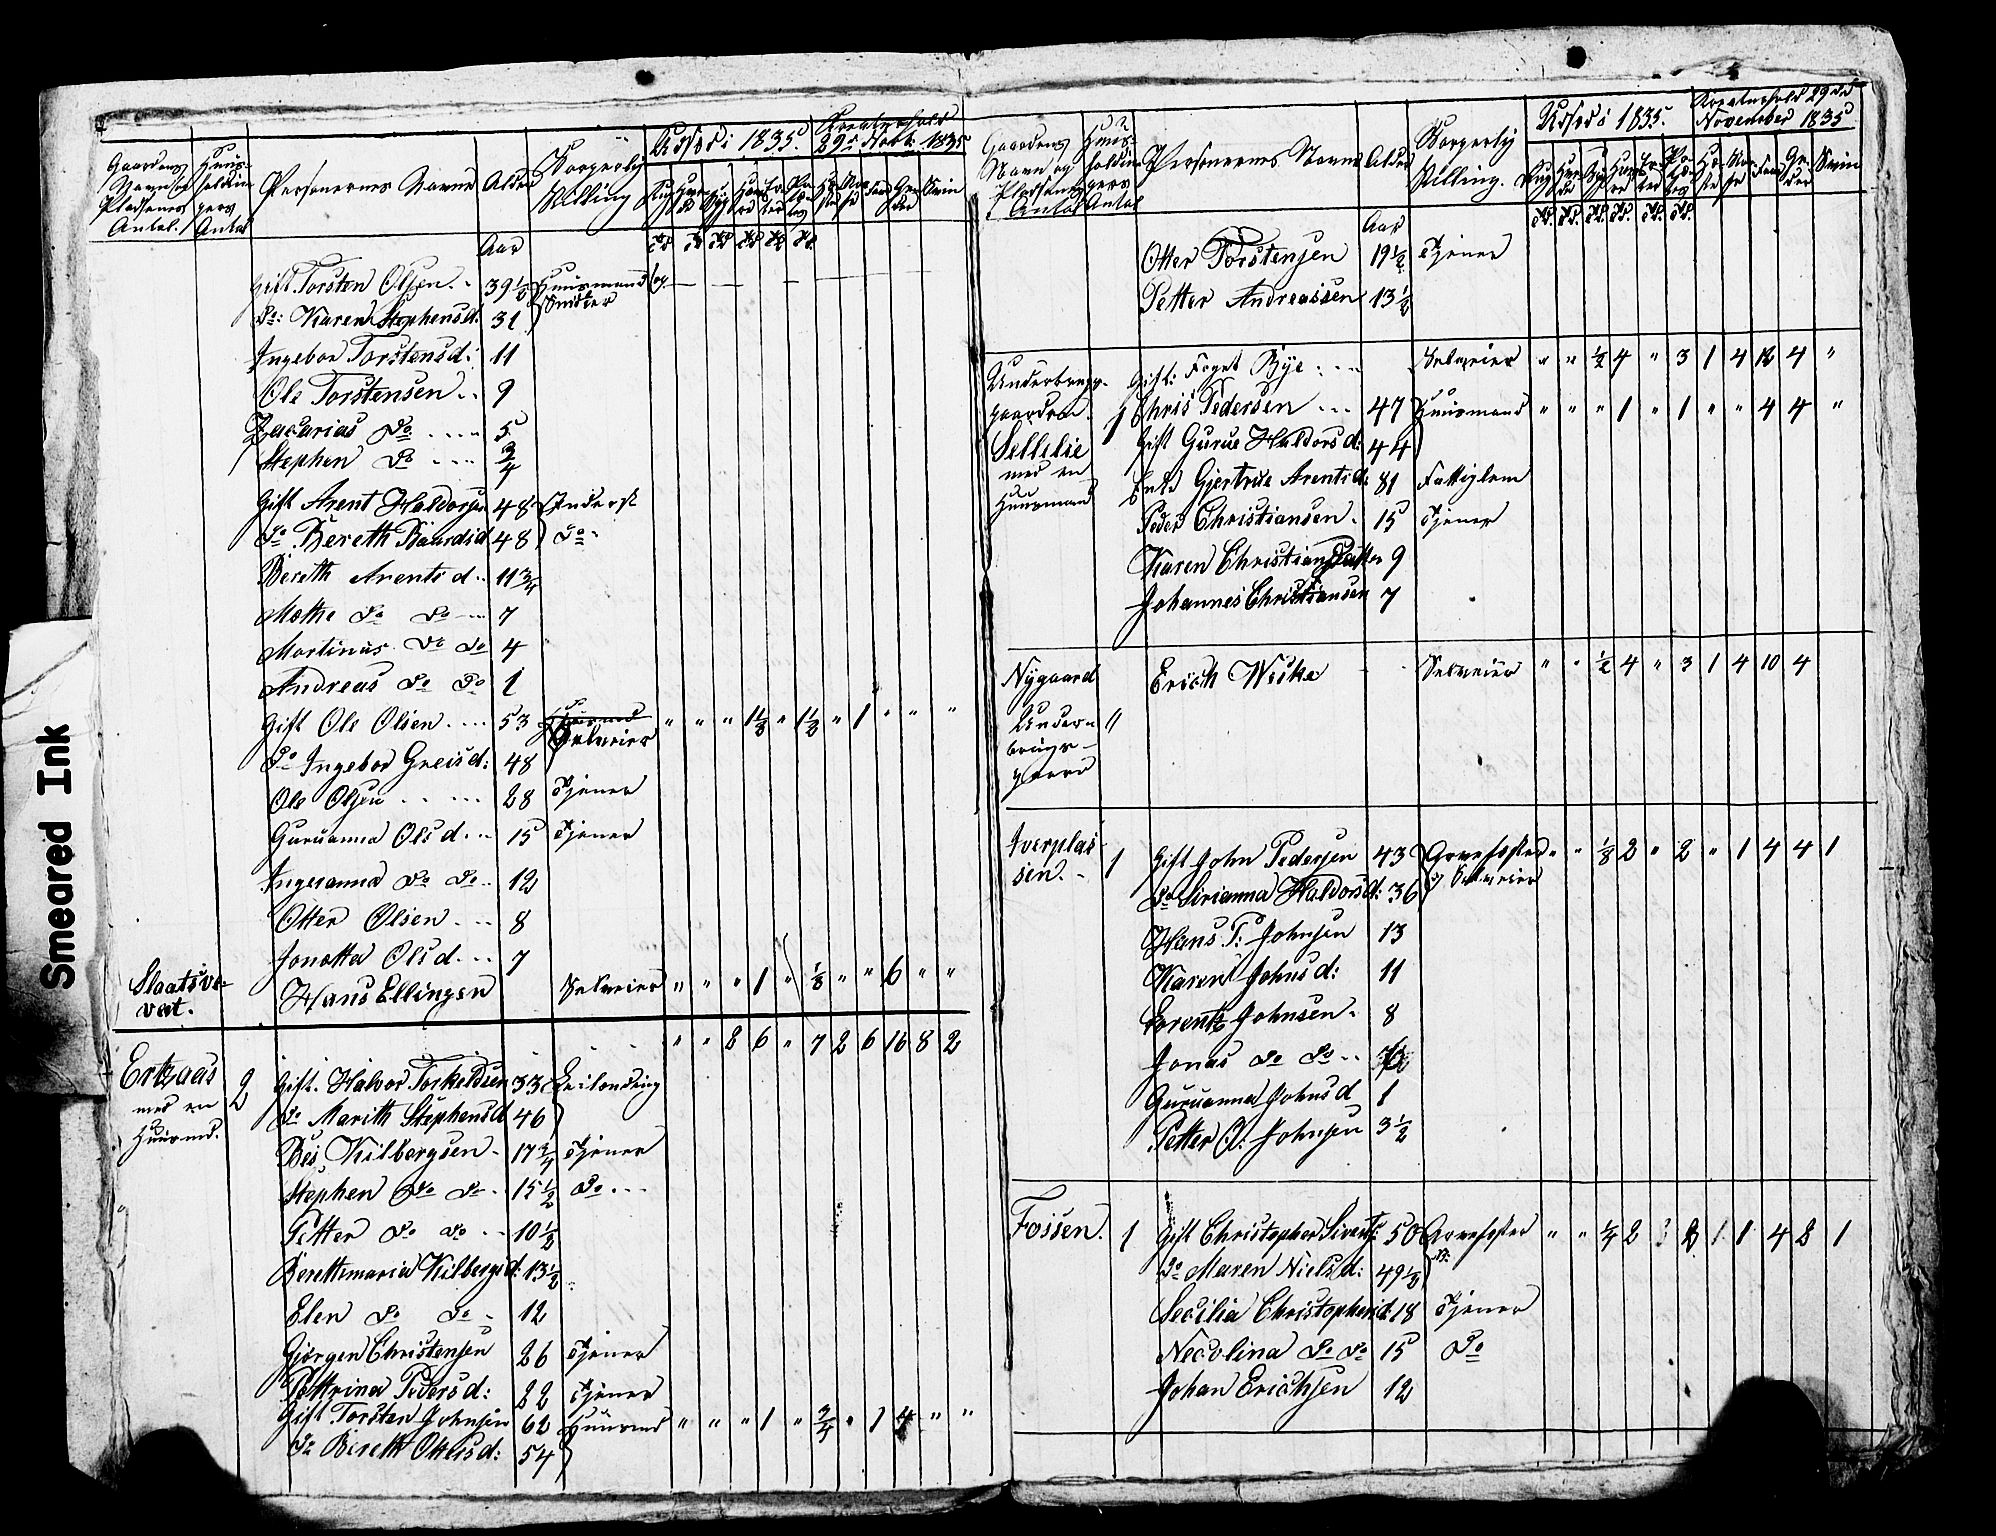 Smeared Ink
Gaardens Navn og Pladsenes Antal. Huusholdningers Antal Personernes Navne Alder Borgerlig Stilling Udsæd i 1835. Kreaturhold 29de Novb: 1835
Aar
Gift Torsten Olsen 39 1/2 Huusmand og Snidker
Do: Karen Stephensd: 31
Ingebor Torstensd: 11
Ole Torstensen 9
Zacarias Do 5
Stephen Do 3/4
Gift Arent Haldorsen 48 Inderst
Do Bereth Baardsd 48 Do
Bereth Arentsd 11 3/4
Mathe Do Do 7
Martinus Do Do 4
Andreas Do Do 1
Gift Ole Olsen 53 Selveier " " " 1 1/8 " 1 1/2 " 1 " " "
Do Ingebor Greisd: 48
Ole Olsen 28 Tjener
Guruanna Olsd 15 Tjener
Ingeranna Do Do 12
Otter Olsen 8
Jonetta Olsd 7
Hans Ellingsen Selveier " " " 1 " 1/8 " " 6 " "
" " 8 6 " 7 2 6 16 8 2
Ertzaas med en Huusmd. 2 Gift. Halvor Torkeldsen 33 Leilænding
Do Marith Stephensd 46
Kilbergsen 17 3/4 Tjener
Stephen Do Do 15 1/2 Do
Petter Do Do 10 1/2
Berethmaria Kilbergsd: 13 1/2
Elen Do Do 12
Gjørgen Christensen 26 Tjener
Pettrina Pedersd: 22 Tjener
Gift Torsten Johnsen 62 Huusmd " " " 1 " 3/4 " 1 4 " "
Do Bereth Ottersd: 54
Gaardens Navn og Pladsenes Antal Huusholdningers Antal Personernes Navne Alder Borgerlig Stilling. Udsæd i 1835. Kreaturhold 29de November 1835
Aar
Otter Torstensen 19 1/2 Tjener
Petter Andreassen 13 1/2
Gift: Foget Bye Selveier " " 1/2 4 " 3 1 4 12 4 "
Sellelie med en Huusmand 1 Chris Pedersen 47 Huusmand " " " 1 " 1 " " 4 4 "
Gift Gurue Haldorsd: 44
Enk. Gjertrue Arentsd: 81 Fattiglem
Peder Christiansen 15 Tjener
Karen Christiansdatter 9
Johannes Christiansen 7
Nygaard Underbrugsgaard " Erich Wicke Selveier " " 1/2 4 " 3 1 4 10 4
Iverpladsen. 1 Gift John Pedersen 43 Selveier " " 1/8 2 " 2 " 1 4 4 1
Do Sirianna Haldorsd: 36
Hans P: Johnsen 13
Karen Johnsd: 11
Lorentz Johnsen 8
Jonas Do Do
Guruanna Johnsd 1
Petter O: Johnsen 3 1/2
Fossen. 1 Gift Christopher Siverts: 50 " " 1/4 2 1 1 4 8 1
Do Maren Nielsd: 49 1/2
Secilia Christophersd: 18 Tjener
Necolina Do Do 15 Do
Johan Erichsen 12